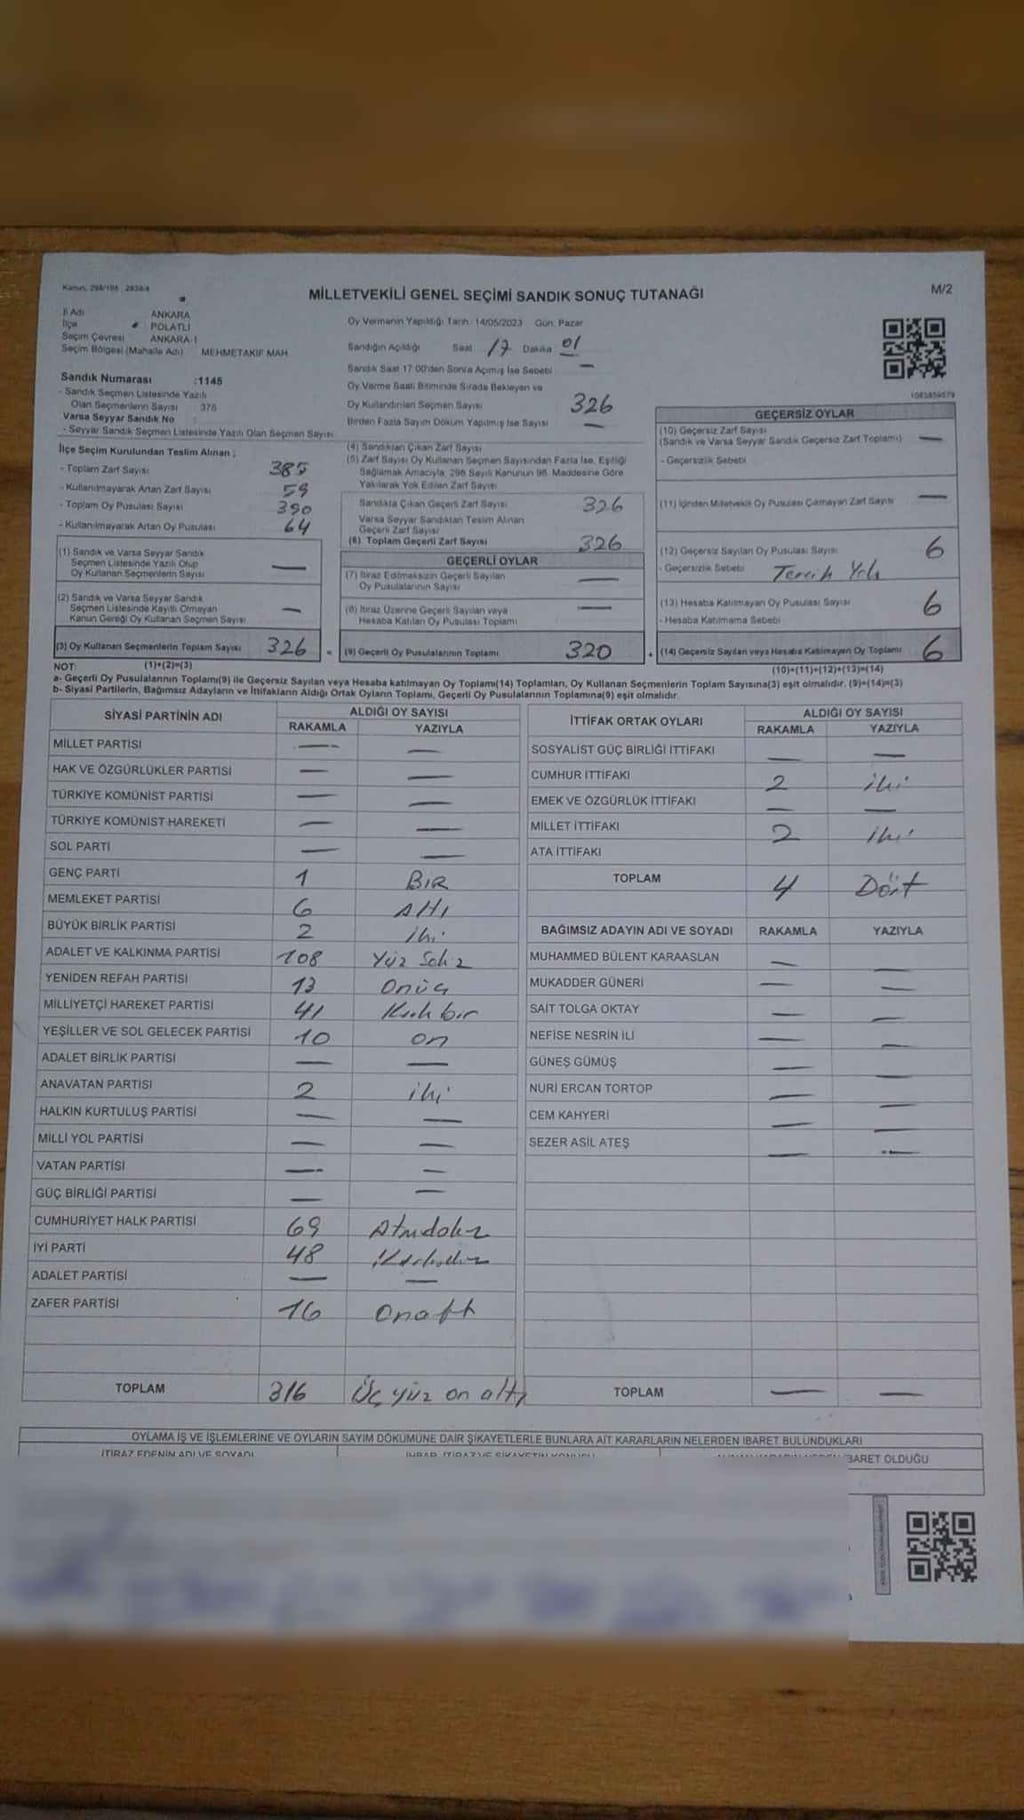 Kanun, 298/105 , 2839/4
MİLLETVEKİLİ GENEL SEÇİMİ SANDIK SONUÇ TUTANAĞI
M/2
İl Adı ANKARA
İlçe POLATLI
Seçim Çevresi ANKARA-1
Seçim Bölgesi (Mahalle Adı) MEHMETAKİF MAH.
Sandık Numarası :1145
- Sandık Seçmen Listesinde Yazılı
Olan Seçmenlerin Sayısı 376
Varsa Seyyar Sandık No
- Seyyar Sandık Seçmen Listesinde Yazılı Olan Seçmen Sayısı
İlçe Seçim Kurulundan Teslim Alınan ;
- Toplam Zarf Sayısı 385
- Kullanılmayarak Artan Zarf Sayısı 59
- Toplam Oy Pusulası Sayısı 390
- Kullanılmayarak Artan Oy Pusulası 64
(1) Sandık ve Varsa Seyyar Sandık
Seçmen Listesinde Yazılı Olup
Oy Kullanan Seçmenlerin Sayısı —
(2) Sandık ve Varsa Seyyar Sandık
Seçmen Listesinde Kayıtlı Olmayan
Kanun Gereği Oy Kullanan Seçmen Sayısı —
(3) Oy Kullanan Seçmenlerin Toplam Sayısı 326 =
Oy Vermenin Yapıldığı Tarih: 14/05/2023 Gün: Pazar
Sandığın Açıldığı Saat 17 Dakika 01
Sandık Saat 17.00'den Sonra Açılmış İse Sebebi —
Oy Verme Saati Bitiminde Sırada Bekleyen ve
Oy Kullandırılan Seçmen Sayısı 326
Birden Fazla Sayım Döküm Yapılmış İse Sayısı —
(4) Sandıktan Çıkan Zarf Sayısı
(5) Zarf Sayısı Oy Kullanan Seçmen Sayısından Fazla İse, Eşitliği
Sağlamak Amacıyla, 298 Sayılı Kanunun 98. Maddesine Göre
Yakılarak Yok Edilen Zarf Sayısı
Sandıkta Çıkan Geçerli Zarf Sayısı 326
Varsa Seyyar Sandıktan Teslim Alınan
Geçerli Zarf Sayısı
(6) Toplam Geçerli Zarf Sayısı 326
GEÇERLİ OYLAR
(7) İtiraz Edilmeksizin Geçerli Sayılan
Oy Pusulalarının Sayısı —
(8) İtiraz Üzerine Geçerli Sayılan veya
Hesaba Katılan Oy Pusulası Toplamı —
(9) Geçerli Oy Pusulalarının Toplamı 320 +
1083859079
GEÇERSİZ OYLAR
(10) Geçersiz Zarf Sayısı
(Sandık ve Varsa Seyyar Sandık Geçersiz Zarf Toplamı) —
- Geçersizlik Sebebi
(11) İçinden Milletvekili Oy Pusulası Çıkmayan Zarf Sayısı —
(12) Geçersiz Sayılan Oy Pusulası Sayısı 6
- Geçersizlik Sebebi Tercih Yok
(13) Hesaba Katılmayan Oy Pusulası Sayısı 6
- Hesaba Katılmama Sebebi
(14) Geçersiz Sayılan veya Hesaba Katılmayan Oy Toplamı 6
NOT: (1)+(2)=(3) (10)+(11)+(12)+(13)=(14)
a- Geçerli Oy Pusulalarının Toplamı(9) ile Geçersiz Sayılan veya Hesaba katılmayan Oy Toplam(14) Toplamları, Oy Kullanan Seçmenlerin Toplam Sayısına(3) eşit olmalıdır. (9)+(14)=(3)
b- Siyasi Partilerin, Bağımsız Adayların ve İttifakların Aldığı Ortak Oyların Toplamı, Geçerli Oy Pusulalarının Toplamına(9) eşit olmalıdır.
SİYASİ PARTİNİN ADI ALDIĞI OY SAYISI
RAKAMLA YAZIYLA
MİLLET PARTİSİ — —
HAK VE ÖZGÜRLÜKLER PARTİSİ — —
TÜRKİYE KOMÜNİST PARTİSİ — —
TÜRKİYE KOMÜNİST HAREKETİ — —
SOL PARTİ — —
GENÇ PARTİ 1 BİR
MEMLEKET PARTİSİ 6 Altı
BÜYÜK BİRLİK PARTİSİ 2 iki
ADALET VE KALKINMA PARTİSİ 108 Yüz Sekiz
YENİDEN REFAH PARTİSİ 13 Onüç
MİLLİYETÇİ HAREKET PARTİSİ 41 Kırkbir
YEŞİLLER VE SOL GELECEK PARTİSİ 10 on
ADALET BİRLİK PARTİSİ — —
ANAVATAN PARTİSİ 2 iki
HALKIN KURTULUŞ PARTİSİ — —
MİLLİ YOL PARTİSİ — —
VATAN PARTİSİ — —
GÜÇ BİRLİĞİ PARTİSİ — —
CUMHURİYET HALK PARTİSİ 69 Atmıdokuz
İYİ PARTİ 48 Kırksekiz
ADALET PARTİSİ — —
ZAFER PARTİSİ 16 Onaltı
TOPLAM 316 Üç yüz on altı
İTTİFAK ORTAK OYLARI ALDIĞI OY SAYISI
RAKAMLA YAZIYLA
SOSYALİST GÜÇ BİRLİĞİ İTTİFAKI — —
CUMHUR İTTİFAKI 2 iki
EMEK VE ÖZGÜRLÜK İTTİFAKI — —
MİLLET İTTİFAKI 2 iki
ATA İTTİFAKI
TOPLAM 4 Dört
BAĞIMSIZ ADAYIN ADI VE SOYADI RAKAMLA YAZIYLA
MUHAMMED BÜLENT KARAASLAN — —
MUKADDER GÜNERİ — —
SAİT TOLGA OKTAY — —
NEFİSE NESRİN İLİ — —
GÜNEŞ GÜMÜŞ — —
NURİ ERCAN TORTOP — —
CEM KAHYERİ — —
SEZER ASİL ATEŞ — —
TOPLAM — —
OYLAMA İŞ VE İŞLEMLERİNE VE OYLARIN SAYIM DÖKÜMÜNE DAİR ŞİKAYETLERLE BUNLARA AİT KARARLARIN NELERDEN İBARET BULUNDUKLARI
İTİRAZ EDENİN ADI VE SOYADI İHBAR, İTİRAZ VE ŞİKAYETİN KONUSU BARET OLDUĞU